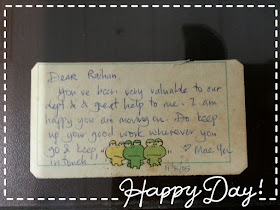 Dear Raihan,
You've been very valuable to our
dept & a great help to me. I am
happy you are moving on. Do keep
up your good work wherever you
go & keep
in touch.
♡ Mae Yen
Happy Day!